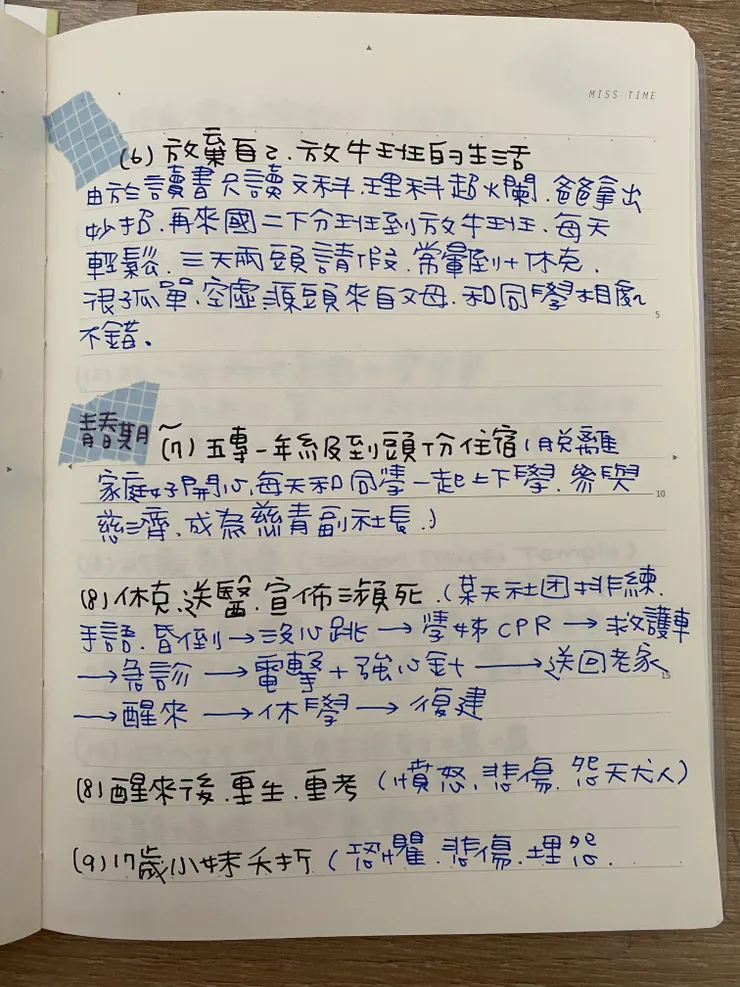 MISS TIME
(6) 放棄自己.放牛班的生活
由於讀書只讀文科.理科超火爛.爸爸拿出
炒招.再來國二下分班到放牛班.每天
輕鬆.三天兩頭請假.常暈到+休克.
很孤單、空虛.源頭來自父母.和同學相處
不錯。
5
青春期
(7) 五專一年級及到頭份住宿(脫離
家庭好開心.每天和同學一起上下學.參與
10
慈濟.成為慈青副社長.)
(8) 休克.送醫.宣佈瀕死.(某天社团排練.
手語.昏倒→沒心跳→學妹CPR→救護車
→急診→電擊+強心針→送回老家
15
→醒來→休學→復建
(8) 醒來後.重生.重考(憤怒.悲傷.怨天尤人)
(9) 17歲小妹夭折(恐懼.悲傷.埋怨.